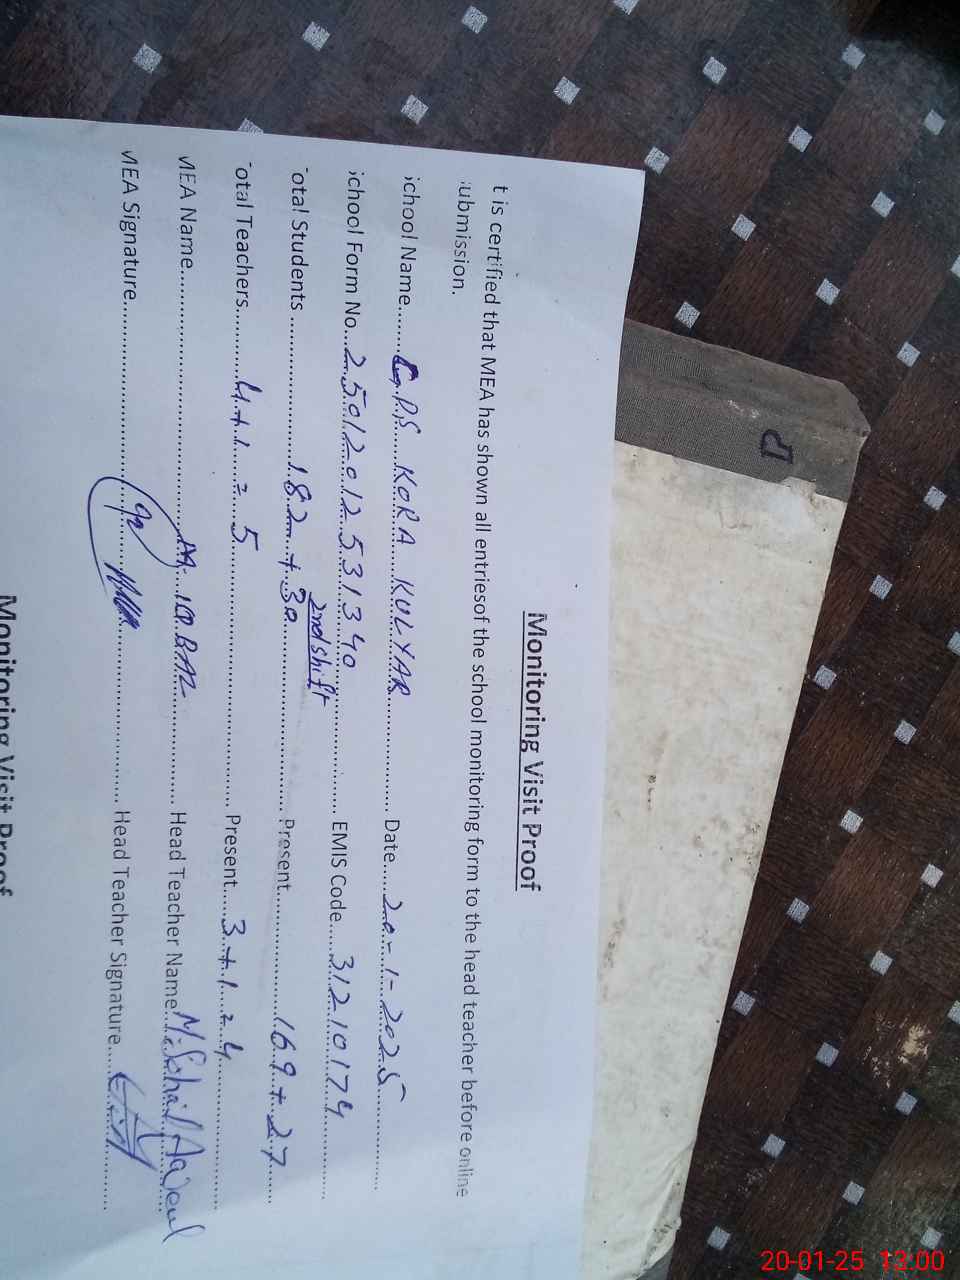 Monitoring Visit Proof
t is certified that MEA has shown all entriesof the school monitoring form to the head teacher before online
ubmission.
chool Name........G.P.S KORA KULYAR............ Date......20-1-2025
chool Form No...25012012531340............ EMIS Code......31210174
2nd shift
otal Students ..................182 + 30.................. Present..................169 + 27
otal Teachers..........4+1 = 5.............................. Present......3+1 = 4
MEA Name..............................M. IQBAL.............. Head Teacher Name M. Sohail
MEA Signature.................................................. Head Teacher Signature
Monitoring Visit Proof
20-01-25 13:00